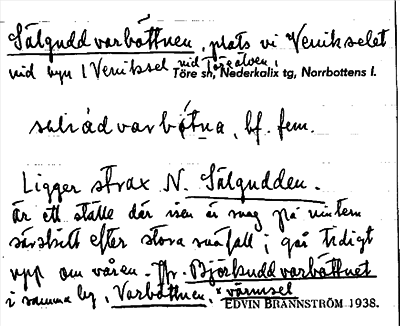 Sälgudd varbåttnen, plats vi Venikselet
vid byn 1 Veniksel vid Töreälven,
Töre sn, Nederkalix tg, Norrbottens l.
bf. fem.
Ligger strax N. Sälgudden.
är ett ställe där isen är svag på vintern
särskilt efter stora snöfall, går tidigt
upp om våren. Jfr. Björkudd varbåttnet
i samma by, Varbåttnen, värmsel
EDVIN BRÄNNSTRÖM 1938.